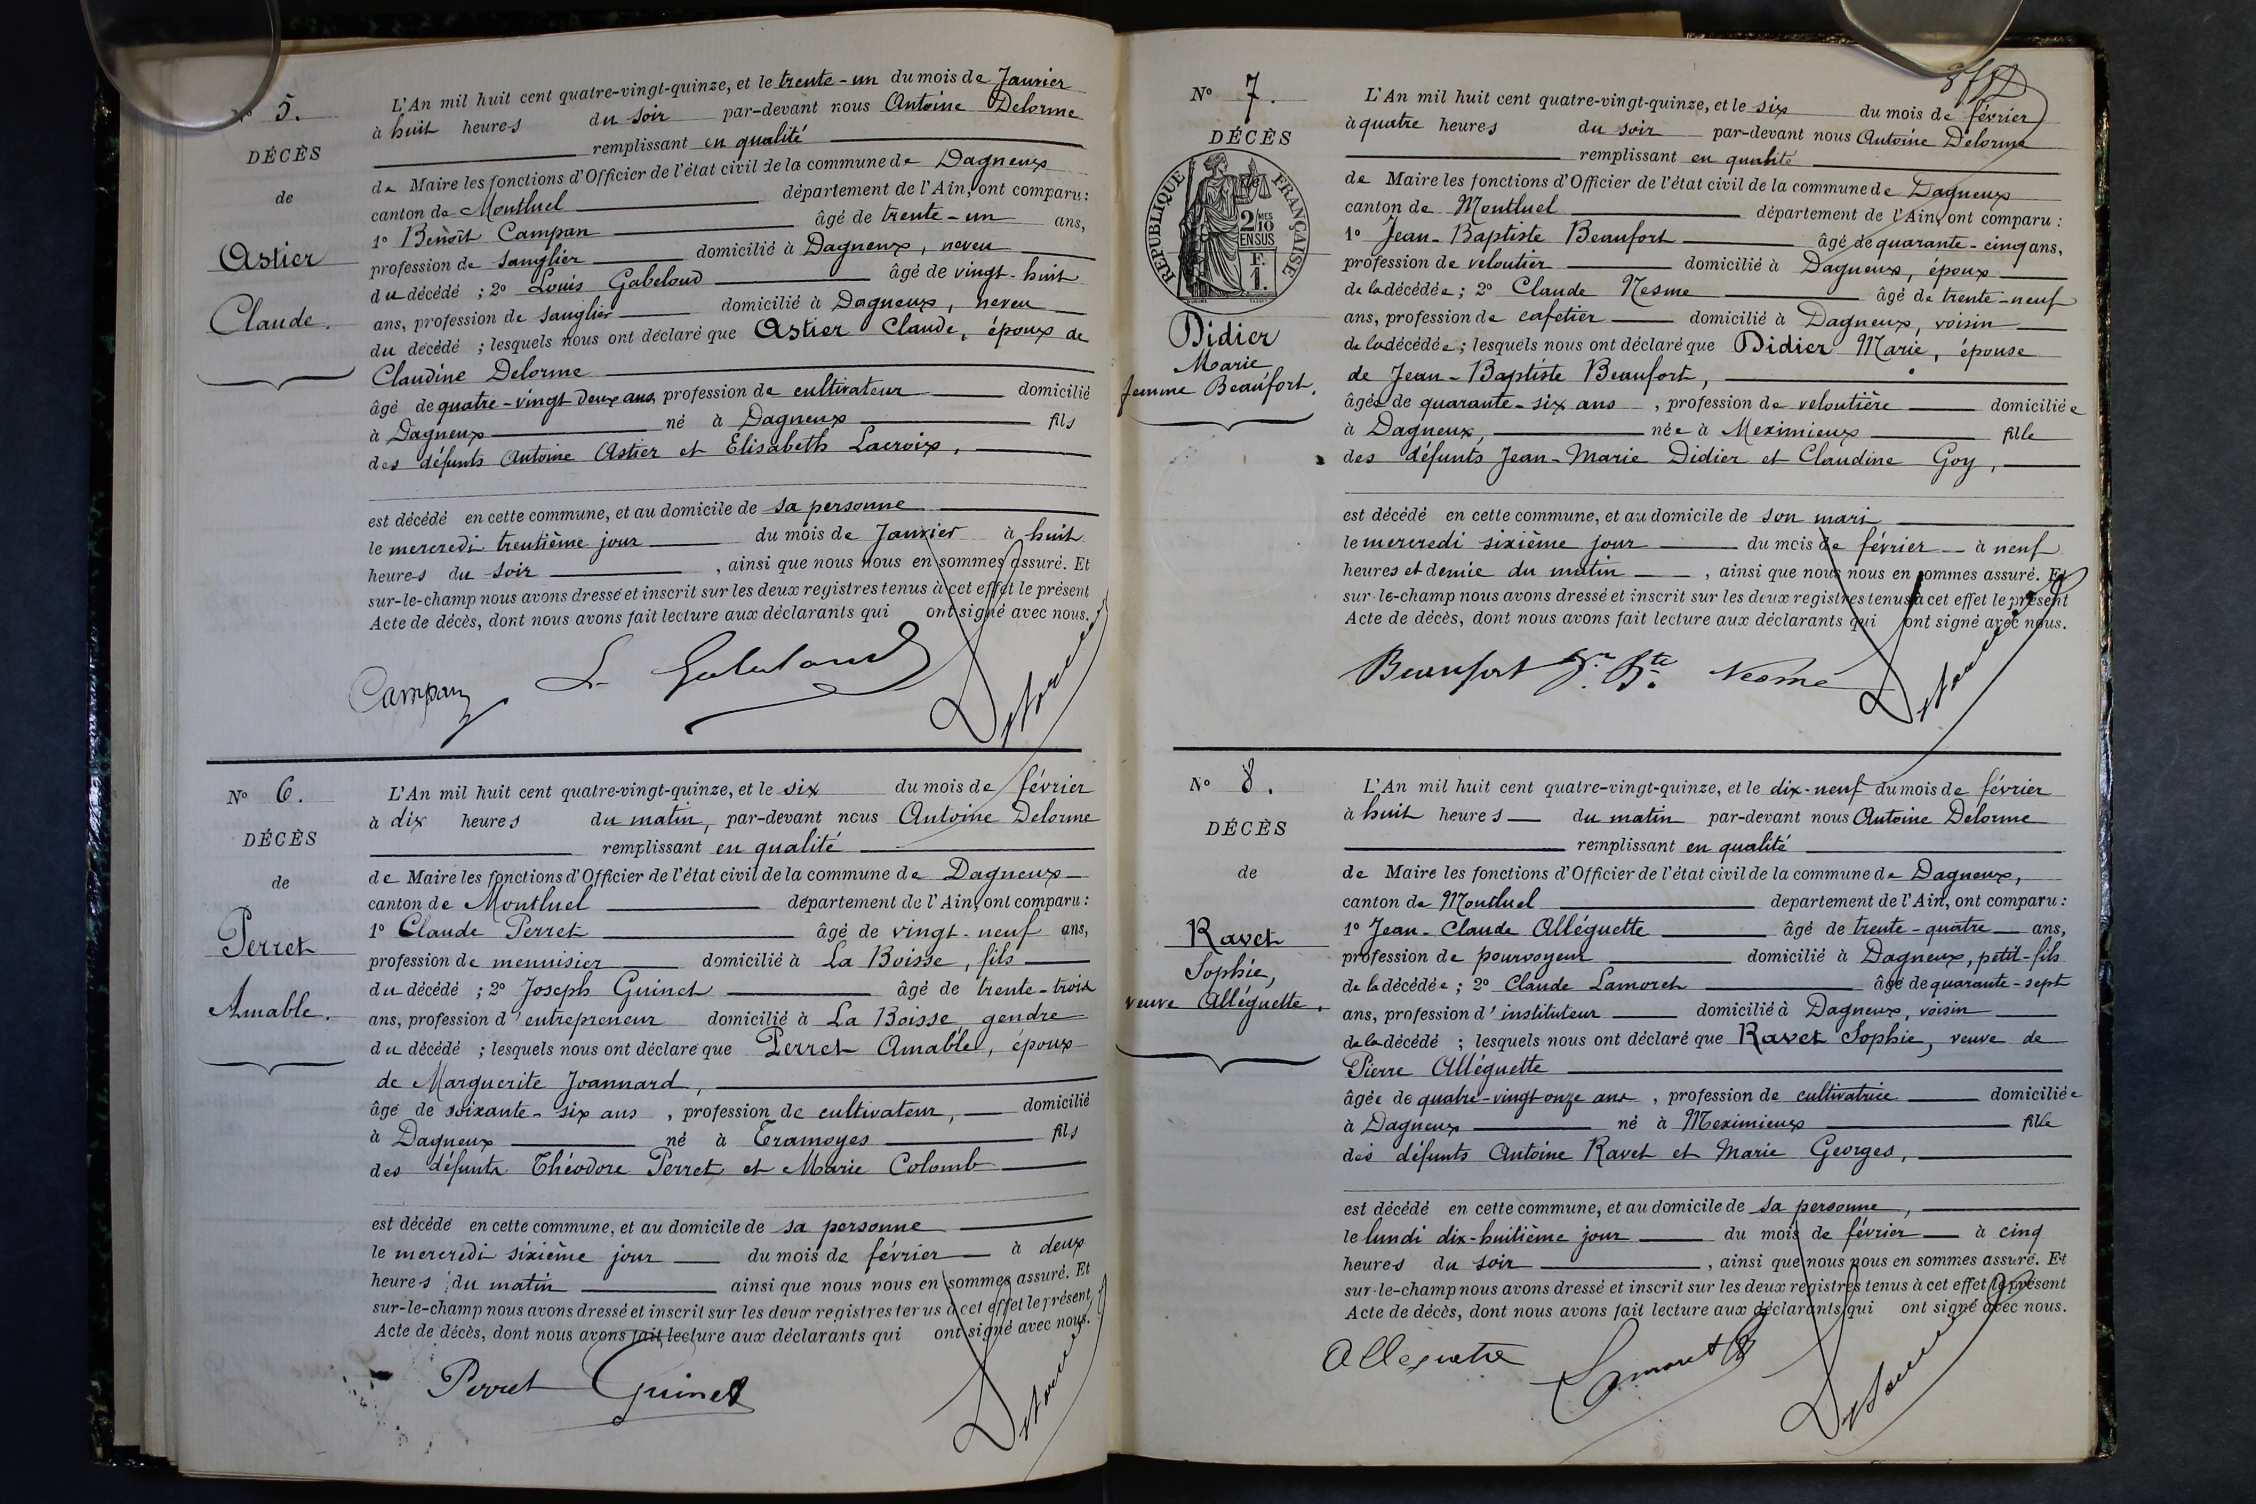 N° 5.
DÉCÈS
de
Astier
Claude.
L'An mil huit cent quatre-vingt-quinze, et le trente-un du mois de Janvier
à huit heures du soir par-devant nous Antoine Delorme
remplissant en qualité
de Maire les fonctions d'Officier de l'état civil de la commune de Dagneux
canton de Montluel département de l'Ain, ont comparu :
1° Benoît Campan âgé de trente-un ans,
profession de sanglier domicilié à Dagneux, neveu
du décédé ; 2° Louis Gabeloud âgé de vingt-huit
ans, profession de sanglier domicilié à Dagneux, neveu
du décédé ; lesquels nous ont déclaré que Astier Claude, époux de
Claudine Delorme
âgé de quatre-vingt deux ans profession de cultivateur domicilié
à Dagneux né à Dagneux fils
des défunts Antoine Astier et Elisabeth Lacroix,
est décédé en cette commune, et au domicile de sa personne
le mercredi trentième jour du mois de Janvier à huit
heures du soir , ainsi que nous nous en sommes assuré. Et
sur-le-champ nous avons dressé et inscrit sur les deux registres tenus à cet effet le présent
Acte de décès, dont nous avons fait lecture aux déclarants qui ont signé avec nous.
Campan L. Gabeloud Delorme
N° 6.
DÉCÈS
de
Perret
Amable.
L'An mil huit cent quatre-vingt-quinze, et le six du mois de février
à dix heures du matin, par-devant nous Antoine Delorme
remplissant en qualité
de Maire les fonctions d'Officier de l'état civil de la commune de Dagneux
canton de Montluel département de l'Ain, ont comparu :
1° Claude Perret âgé de vingt-neuf ans,
profession de menuisier domicilié à La Boisse, fils
du décédé ; 2° Joseph Guinet âgé de trente-trois
ans, profession d'entrepreneur domicilié à La Boisse gendre
du décédé ; lesquels nous ont déclaré que Perret Amable, époux
de Marguerite Joannard,
âgé de soixante-six ans , profession de cultivateur, domicilié
à Dagneux né à Tramoyes fils
des défunts Théodore Perret et Marie Colomb
est décédé en cette commune, et au domicile de sa personne
le mercredi sixième jour du mois de février à deux
heures du matin ainsi que nous nous en sommes assuré. Et
sur-le-champ nous avons dressé et inscrit sur les deux registres tenus à cet effet le présent
Acte de décès, dont nous avons fait lecture aux déclarants qui ont signé avec nous.
Perret Guinet Delorme
N° 7.
DÉCÈS
de
RÉPUBLIQUE FRANÇAISE
2/10 MES
EN SUS
F.
1.
Didier
Marie
femme Beaufort.
L'An mil huit cent quatre-vingt-quinze, et le six du mois de février
à quatre heures du soir par-devant nous Antoine Delorme
remplissant en qualité
de Maire les fonctions d'Officier de l'état civil de la commune de Dagneux
canton de Montluel département de l'Ain, ont comparu :
1° Jean-Baptiste Beaufort âgé de quarante-cinq ans,
profession de veloutier domicilié à Dagneux, époux
de la décédée ; 2° Claude Nesme âgé de trente-neuf
ans, profession de cafetier domicilié à Dagneux, voisin
de la décédée ; lesquels nous ont déclaré que Didier Marie, épouse
de Jean-Baptiste Beaufort,
âgée de quarante-six ans , profession de veloutière domiciliée
à Dagneux, née à Meximieux fille
des défunts Jean-Marie Didier et Claudine Goy,
est décédé en cette commune, et au domicile de son mari
le mercredi sixième jour du mois de février à neuf
heures et demie du matin , ainsi que nous nous en sommes assuré. Et
sur-le-champ nous avons dressé et inscrit sur les deux registres tenus à cet effet le présent
Acte de décès, dont nous avons fait lecture aux déclarants qui ont signé avec nous.
Beaufort Jn Bte Nesme Delorme
N° 8.
DÉCÈS
de
Ravet
Sophie,
veuve Alléguette.
L'An mil huit cent quatre-vingt-quinze, et le dix-neuf du mois de février
à huit heures du matin par-devant nous Antoine Delorme
remplissant en qualité
de Maire les fonctions d'Officier de l'état civil de la commune de Dagneux,
canton de Montluel département de l'Ain, ont comparu :
1° Jean-Claude Alléguette âgé de trente-quatre ans,
profession de pourvoyeur domicilié à Dagneux, petit-fils
de la décédée ; 2° Claude Lamoret âgé de quarante-sept
ans, profession d'instituteur domicilié à Dagneux, voisin
de la décédé ; lesquels nous ont déclaré que Ravet Sophie, veuve de
Pierre Alléguette
âgée de quatre-vingt onze ans , profession de cultivatrice domiciliée
à Dagneux né à Meximieux fille
des défunts Antoine Ravet et Marie Georges,
est décédé en cette commune, et au domicile de sa personne,
le lundi dix-huitième jour du mois de février à cinq
heures du soir , ainsi que nous nous en sommes assuré. Et
sur-le-champ nous avons dressé et inscrit sur les deux registres tenus à cet effet le présent
Acte de décès, dont nous avons fait lecture aux déclarants qui ont signé avec nous.
Alleguette Lamoret Delorme